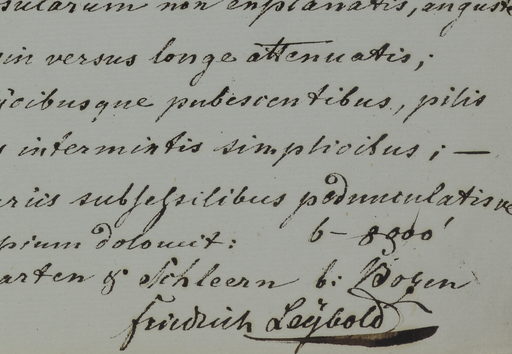 sularum non explanatis, anguste
sin versus longe attenuatis;
icibusque pubescentibus, pilis
s intermixtis simplicibus; —
ariis subsessilibus pedunculatisve
pium dolomit: 6-8900'
arten & Schleern b: Bozen
Friedrich Leÿbold